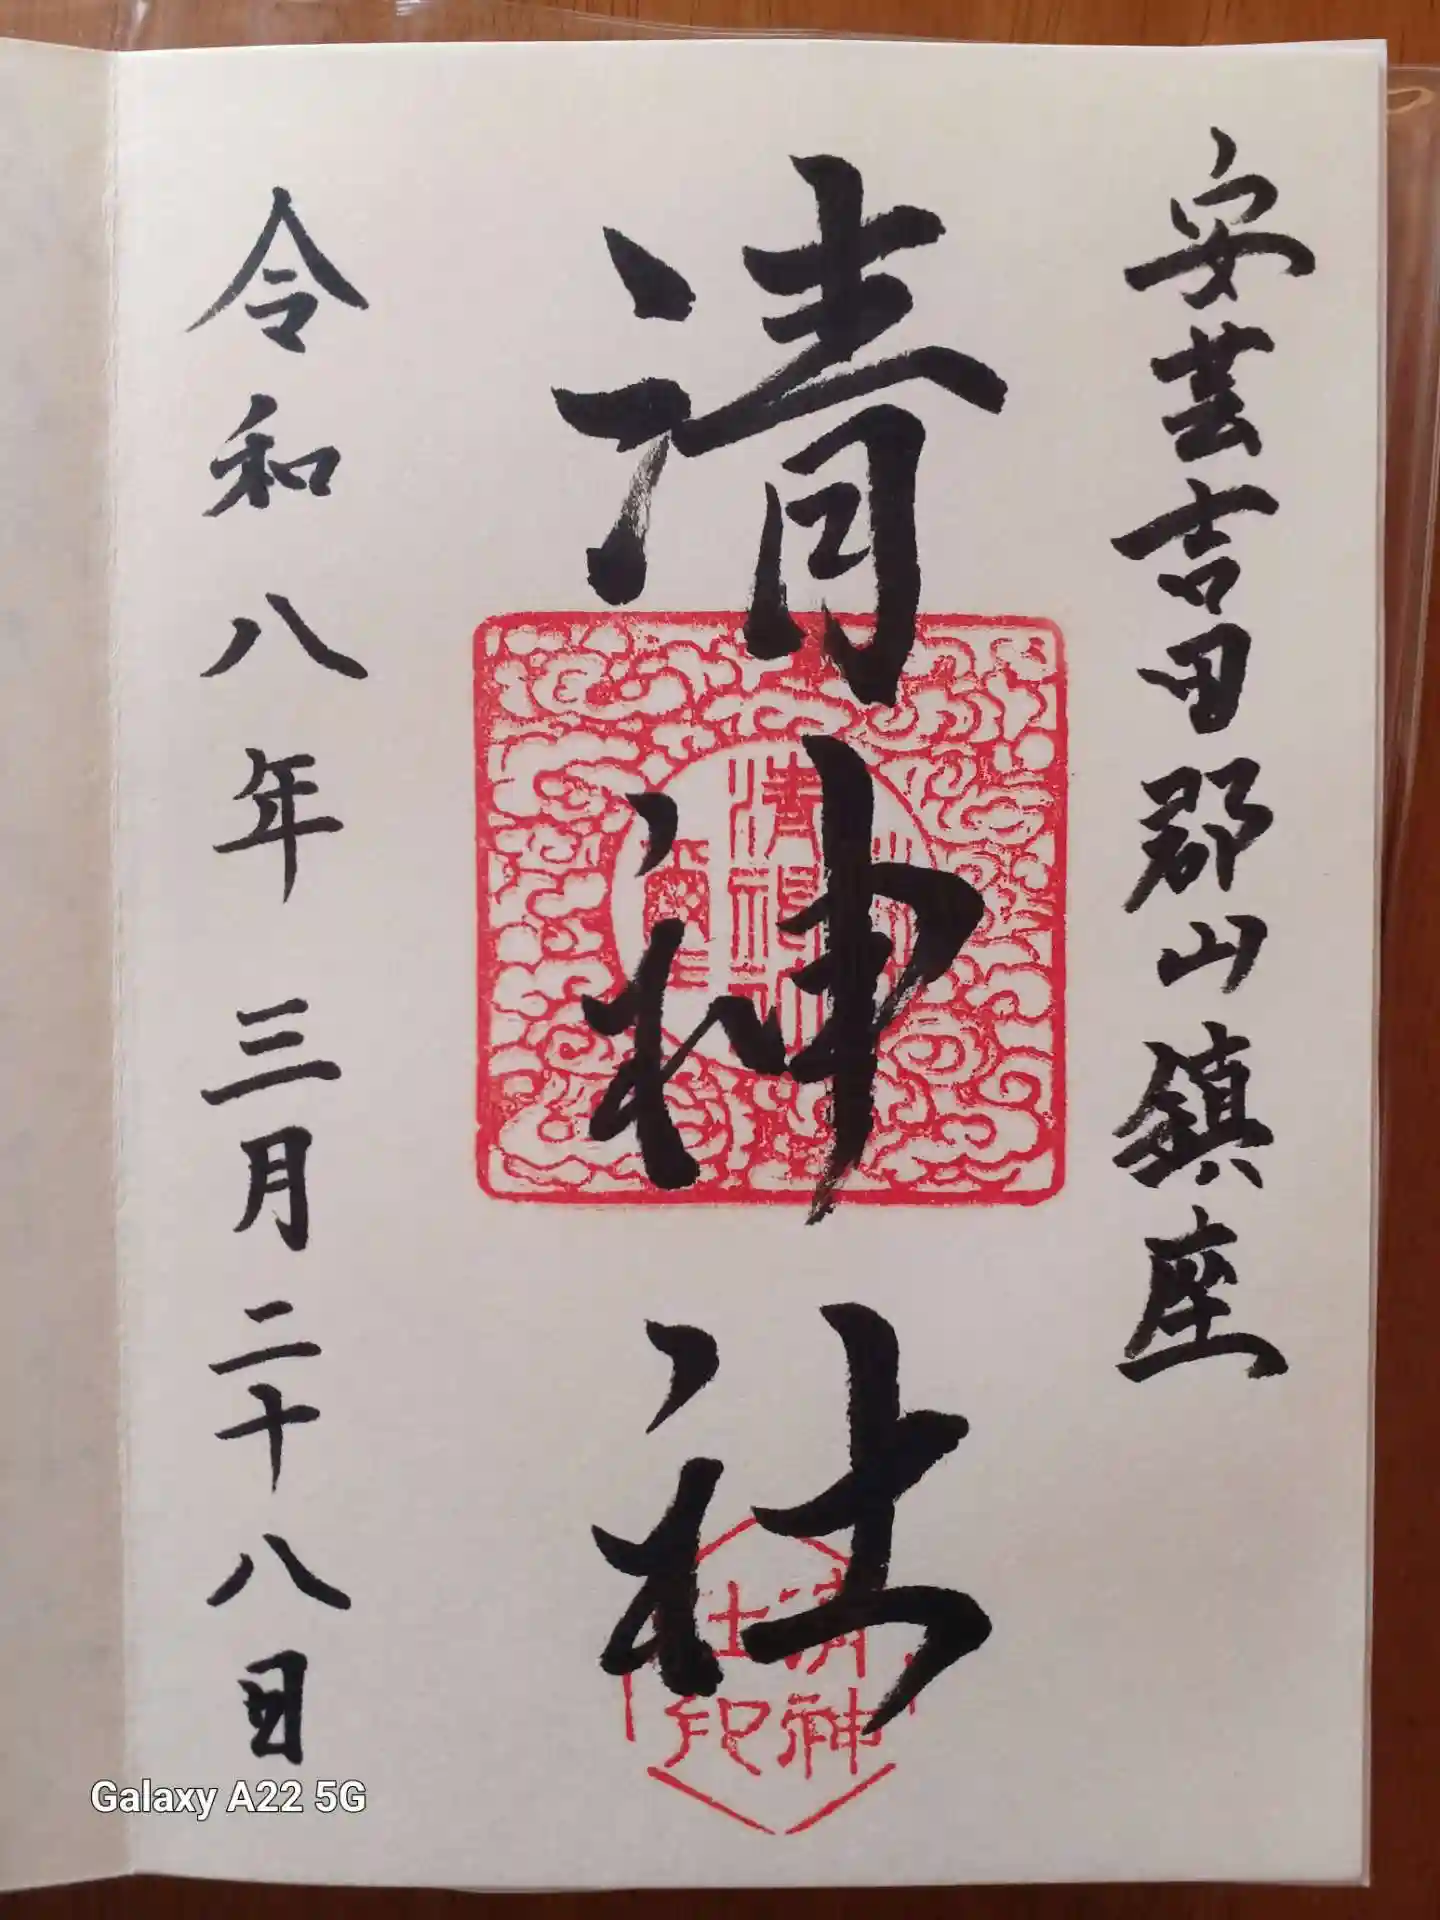 安芸吉田郡山鎮座
清神社
令和八年 三月二十八日
清神
社印
Galaxy A22 5G